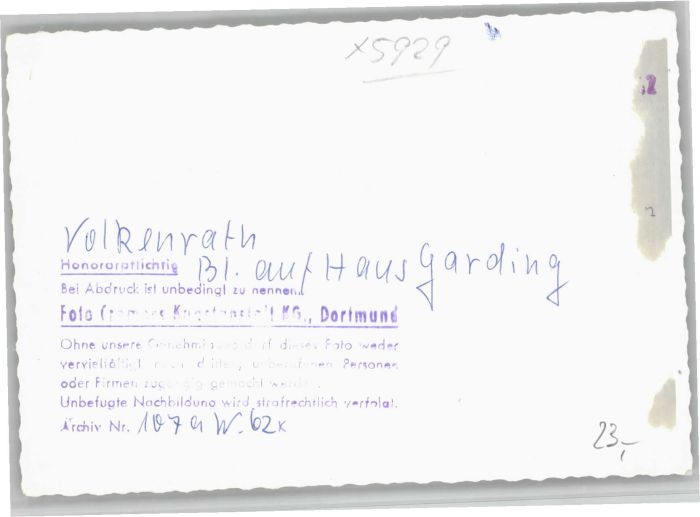 x5929
Volkenrath
Bl. auf Haus Garding
Honorarpflichtig
Bei Abdruck ist unbedingt zu nennen:
Foto Cramers Kunstanstalt KG., Dortmund
Ohne unsere Genehmigung darf dieses Foto weder
vervielfältigt noch dritten, unberufenen Personen
oder Firmen zugängig gemacht werden.
Unbefugte Nachbildung wird strafrechtlich verfolgt.
Archiv Nr. 107 a W. 62 K
23,-